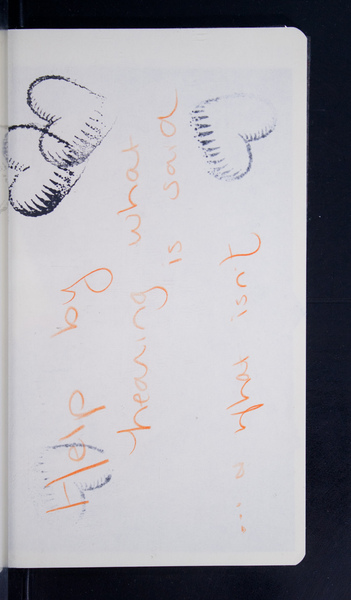 Help by
hearing what
is said
... & what isn't